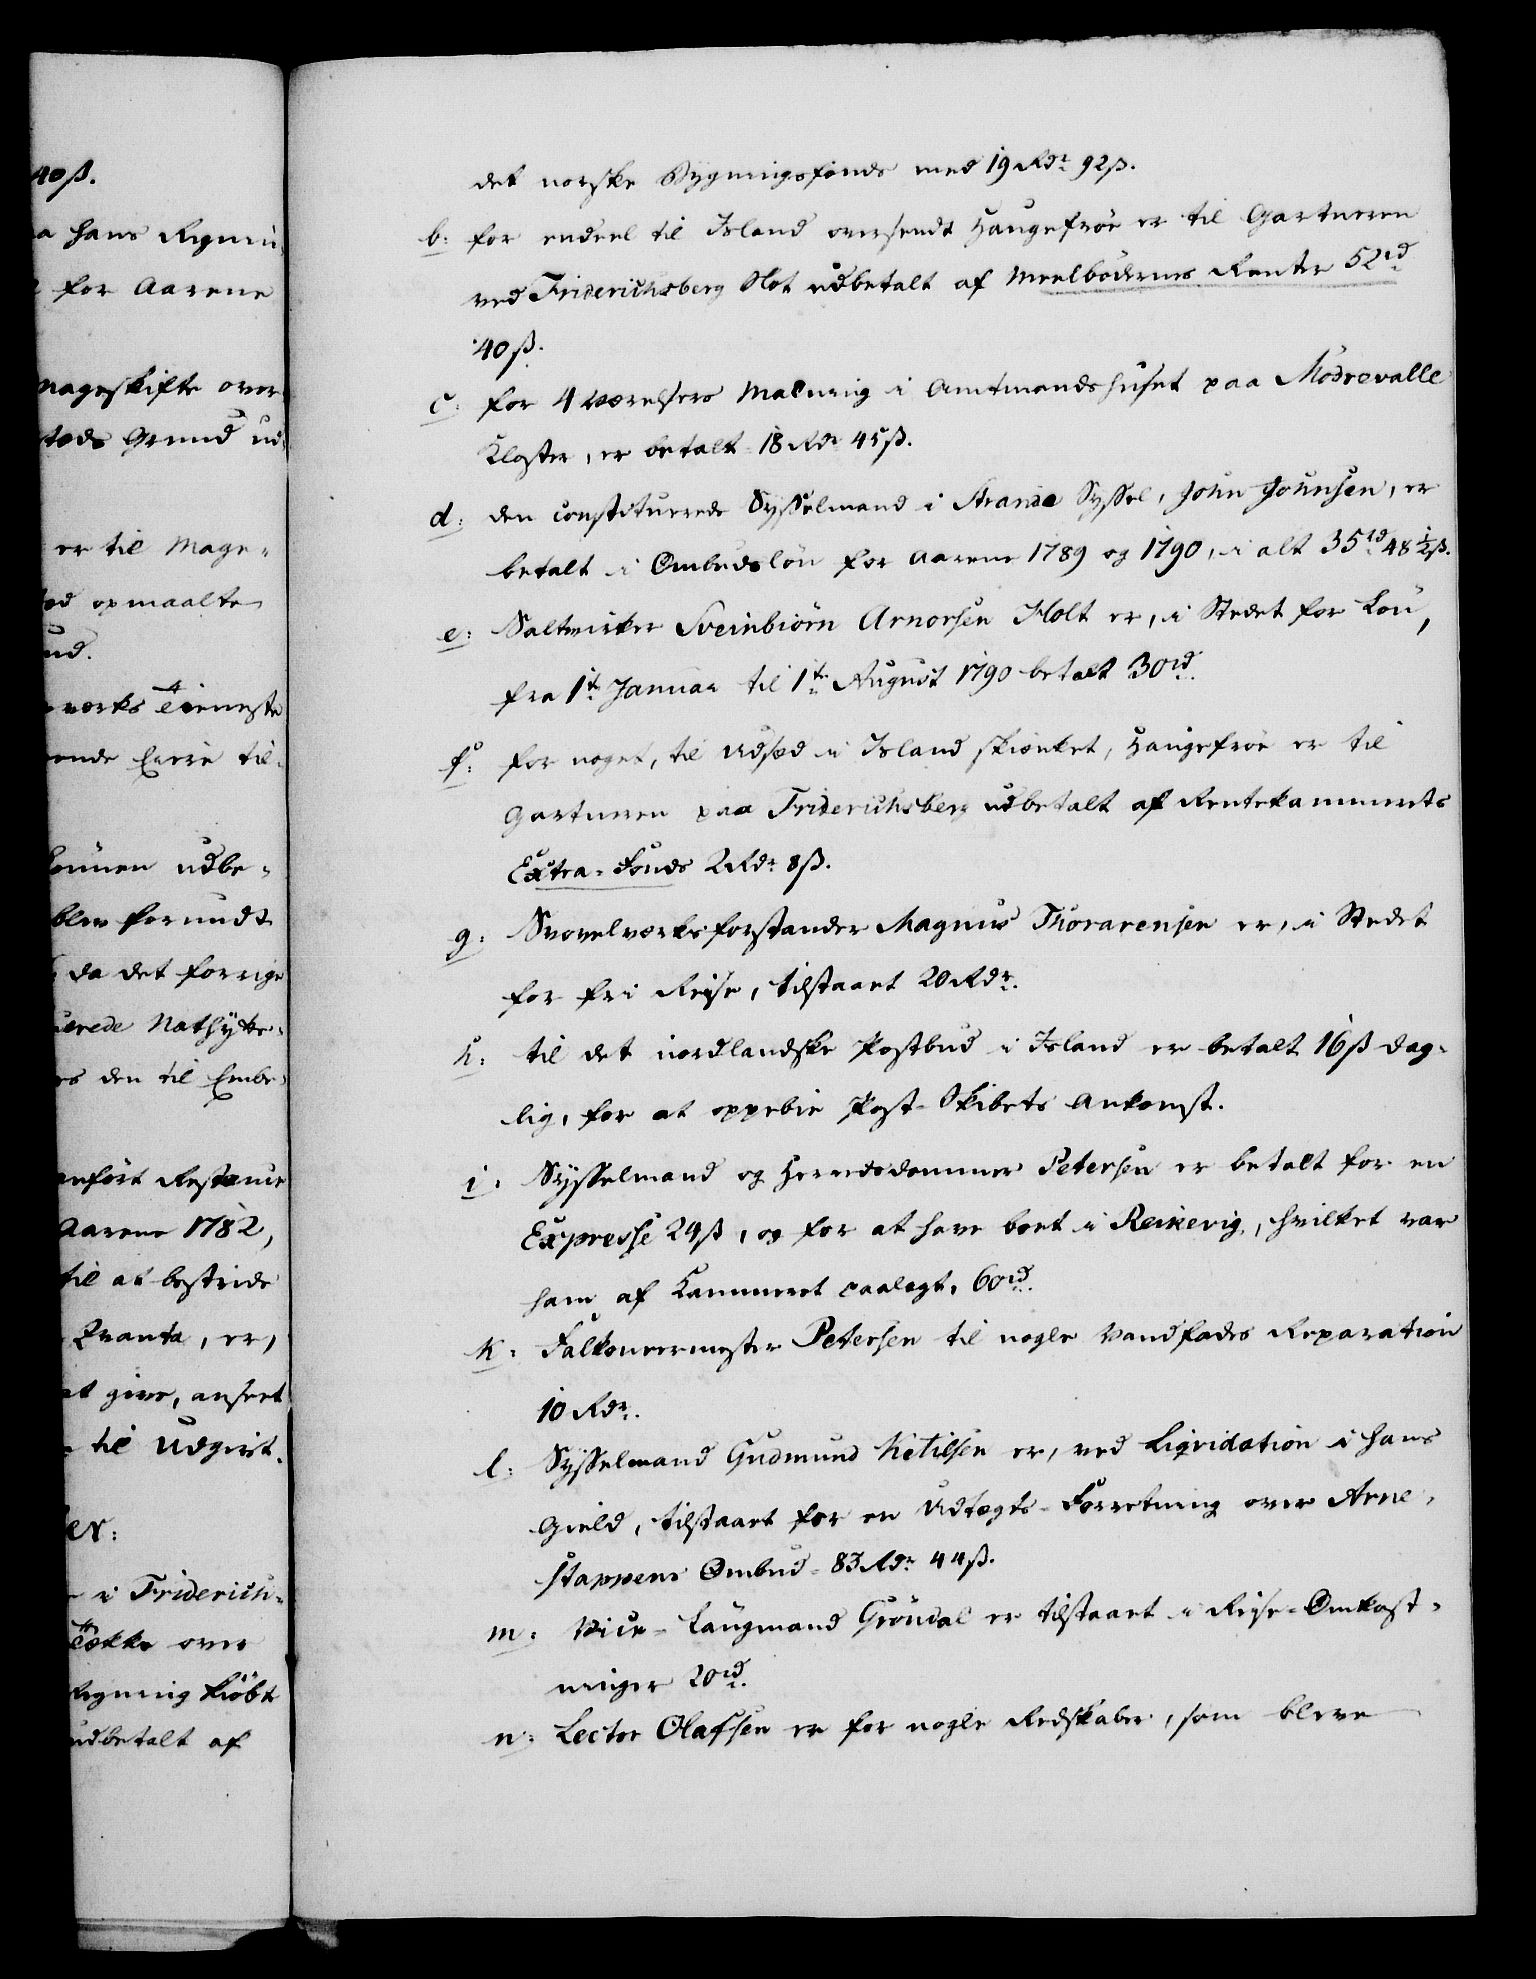 40ß.
a hans Regnin-
for Aarene
Mageskifte over
steds Grund ud-
er til Mage-
opmaalte
værks Tieneste
ende Eierie til-
Lönnen udbe-
blev forundt
da det forrige
Nathytte-
es den til Embe-
anført Restance
Aarene 1782,
til at bestride
Qvanta, er,
at give, anseet
til Udgivt.
er:
i Friderich-
Tække over
Regning kiöbt
udbetalt af
det norske Bygningsfonds med 19 Rdr 92ß.
b: for endeel til Island oversendt Haugefröe er til Gartneren
ved Friderichsberg Slot udbetalt af Meelbödernes Rente 52rd
40ß.
c: for 4 Værelsers Malning i Amtmandshuset paa Mödrevalle
Kloster, er betalt 18 Rdr 45ß.
d: den constituerede Sysselmand i Strande Syssel, John Johnsen, er
betalt i Ombudslön for Aarene 1789 og 1790, i alt 35rd 48½ß.
e: Saltsirker Sveinbiörn Arnorsen Holt er, i Stedet for Lön,
fra 1te Januar til 1te August 1790 betalt 30rd.
f: for noget, til Udsæd i Island skienket, Haugefröe er til
Gartneren paa Friderichsberg udbetalt af Rentekammerets
Extra-Fonds 2 Rdr 8ß.
g: Svovelværksforstander Magnus Thorarensen er, i Stedet
for fri Reise, tilstaaet 20 Rdr.
h: til det nordlandske Postbud i Island er betalt 16ß dag-
lig, for at oppebie Post-Skibets Ankomst.
i: Sysselmand og Herredsdommer Petersen er betalt for en
Expresse 24ß, og for at have boet i Reikevig, hvilket var
ham af Kammeret paalagt, 60rd.
k: Falkoneermester Petersen til nogle Vandfades Reparation
10 Rdr.
l: Sysselmand Gudmund Ketilsen er, ved Liqvidation i hans
Gield, tilstaaet for en Udtægts-Forretning over Arne-
stappens Ombud 83 Rdr 44ß.
m: Vice-Laugmand Gröndal er tilstaaet i Reise-Omkost-
ninger 20rd.
n: Lector Olafsen er for nogle Redskaber, som bleve